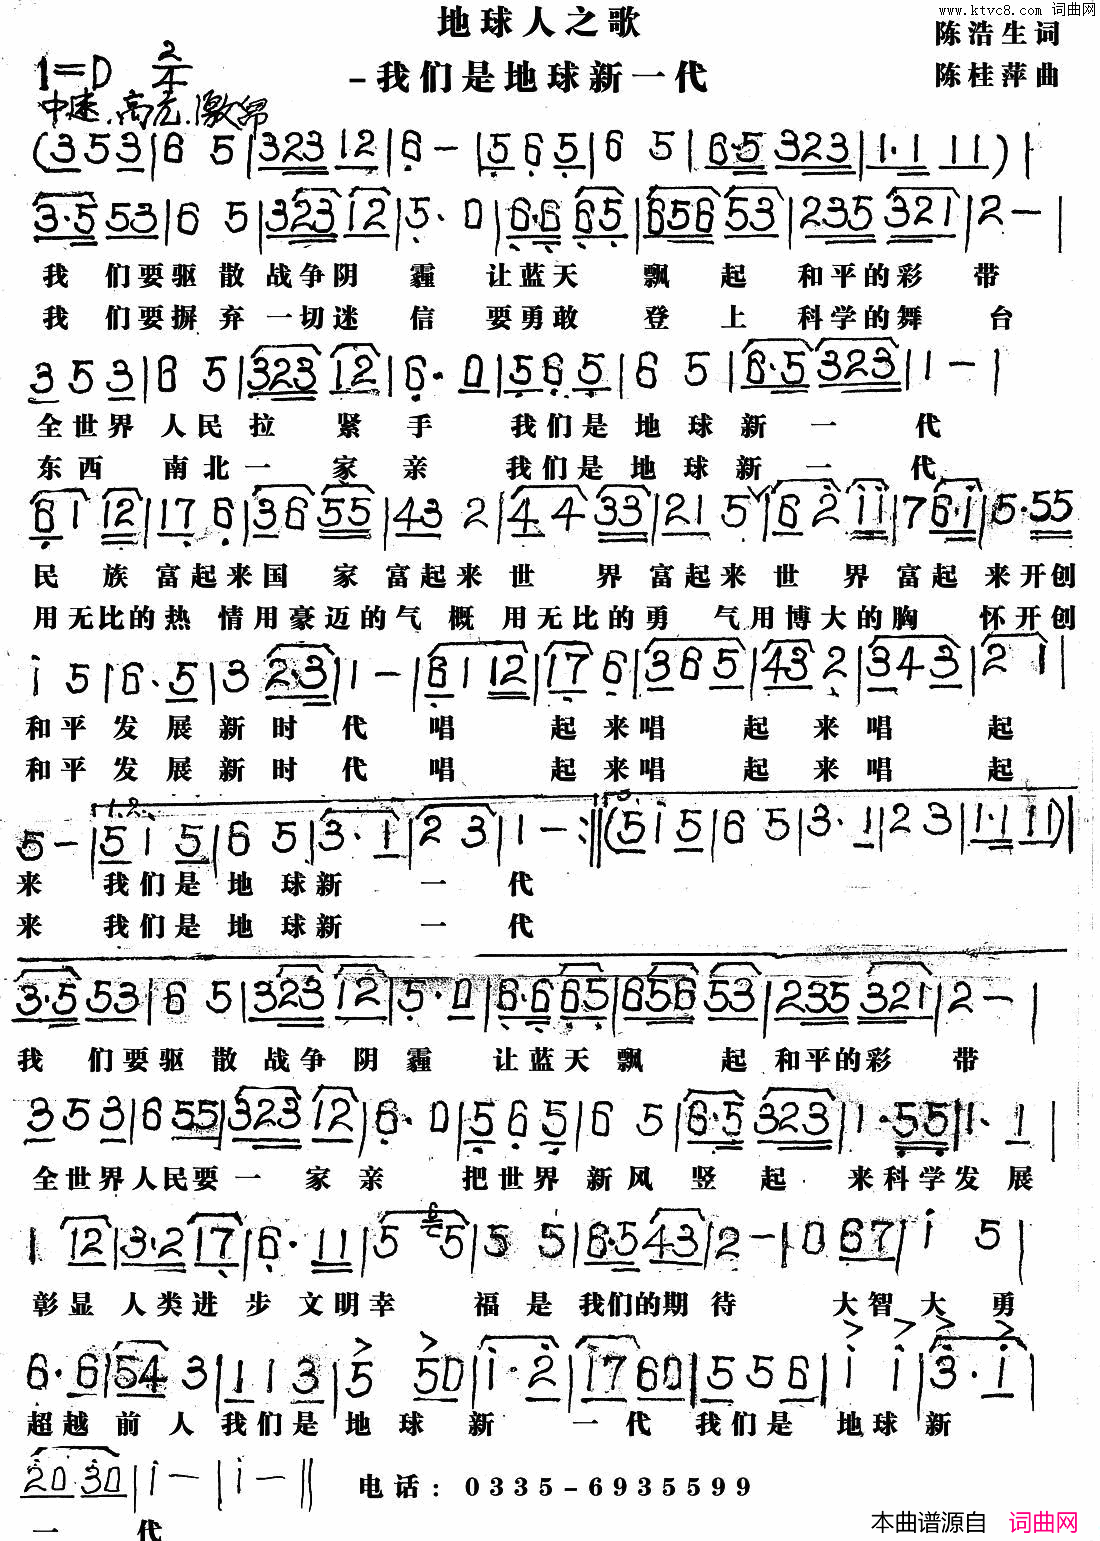 www.ktvc8.com 词曲网
地球人之歌
陈浩生词
1=D 2/4
-我们是地球新一代
陈桂萍曲
中速.高亢.激昂
(353|6 5|323 12|6 -|565|6 5|6·5 323|1·1 11)|
3·5 53|6 5|323 12|5·0|6·6 65|656 53|235 321|2 -|
我 们要驱 散 战争阴 霾 让蓝天 飘 起 和平的彩 带
我 们要摒 弃 一切迷 信 要勇敢 登 上 科学的舞 台
353|6 5|323 12|6·0|565|6 5|6·5 323|1 -|
全世界 人民 拉 紧 手 我们是 地 球 新 一 代
东西 南北一 家 亲 我们是 地 球 新 一 代
61 12|17 6|36 55|43 2|44 33|21 5|62 11|7 61|5·55
民 族 富起来国 家富起来世 界富起来世 界富起 来开创
用无比的热 情用豪迈的气 概 用无比的勇 气用博大的胸 怀开创
i 5|6·5|3 2·3|1 -|61 12|17 6|365|43 2|343|2 1|
和平 发 展 新 时 代 唱 起 来唱 起 来唱 起
和平 发 展 新 时 代 唱 起 来唱 起 来唱 起
1.2. 3.
5 -|5i5|6 5|3·1|2 3|1 - :||(5i5|6 5|3·1|2 3|1·1 11)|
来 我们是 地 球新 一 代
来 我们是 地 球新 一 代
3·5 53|6 5|323 12|5·0|6·6 65|656 53|235 321|2 -|
我 们要驱 散 战争 阴 霾 让蓝天飘 起 和平的彩 带
353|6 55|323 12|6·0|565|6 5|6·5 323|1·55|1·1|
全世界人民要一 家 亲 把世界 新风 竖 起 来科学发 展
1 12|3·2 17|6·11|5 65|5 5|6·5 43|2 -|0 67|i 5|
彰显 人类进 步 文明幸 福 是 我们的期 待 大智大 勇
6·6|54 3|113|5 50|i·2|17 60|556|i i|3·i|
超越 前 人 我们是 地 球 新 一 代 我们是 地球 新
20 30|i -|i -||
电话: 0335-6935599
一 代
本曲谱源自 词曲网